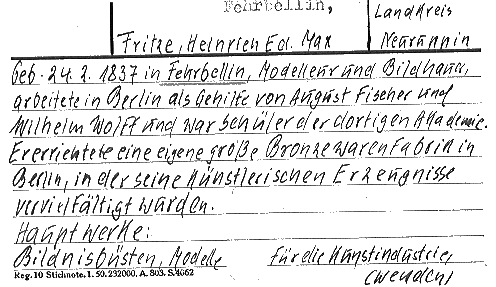 Fehrbellin,
Landkreis
Fritze, Heinrich Ed. Max
Neuruppin
Geb. 24.2.1837 in Fehrbellin, Modelleur und Bildhauer,
arbeitete in Berlin als Gehilfe von August Fischer und
Wilhelm Wolff und war Schüler der dortigen Akademie.
Er errichtete eine eigene große Bronzewarenfabrik in
Berlin, in der seine künstlerischen Erzeugnisse
vervielfältigt wurden.
Hauptwerke:
Bildnisbüsten, Modelle für die Kunstindustrie,
(wenden)
Reg. 10 Stichnote. 1. 50. 232000. A. 803. S. 4662